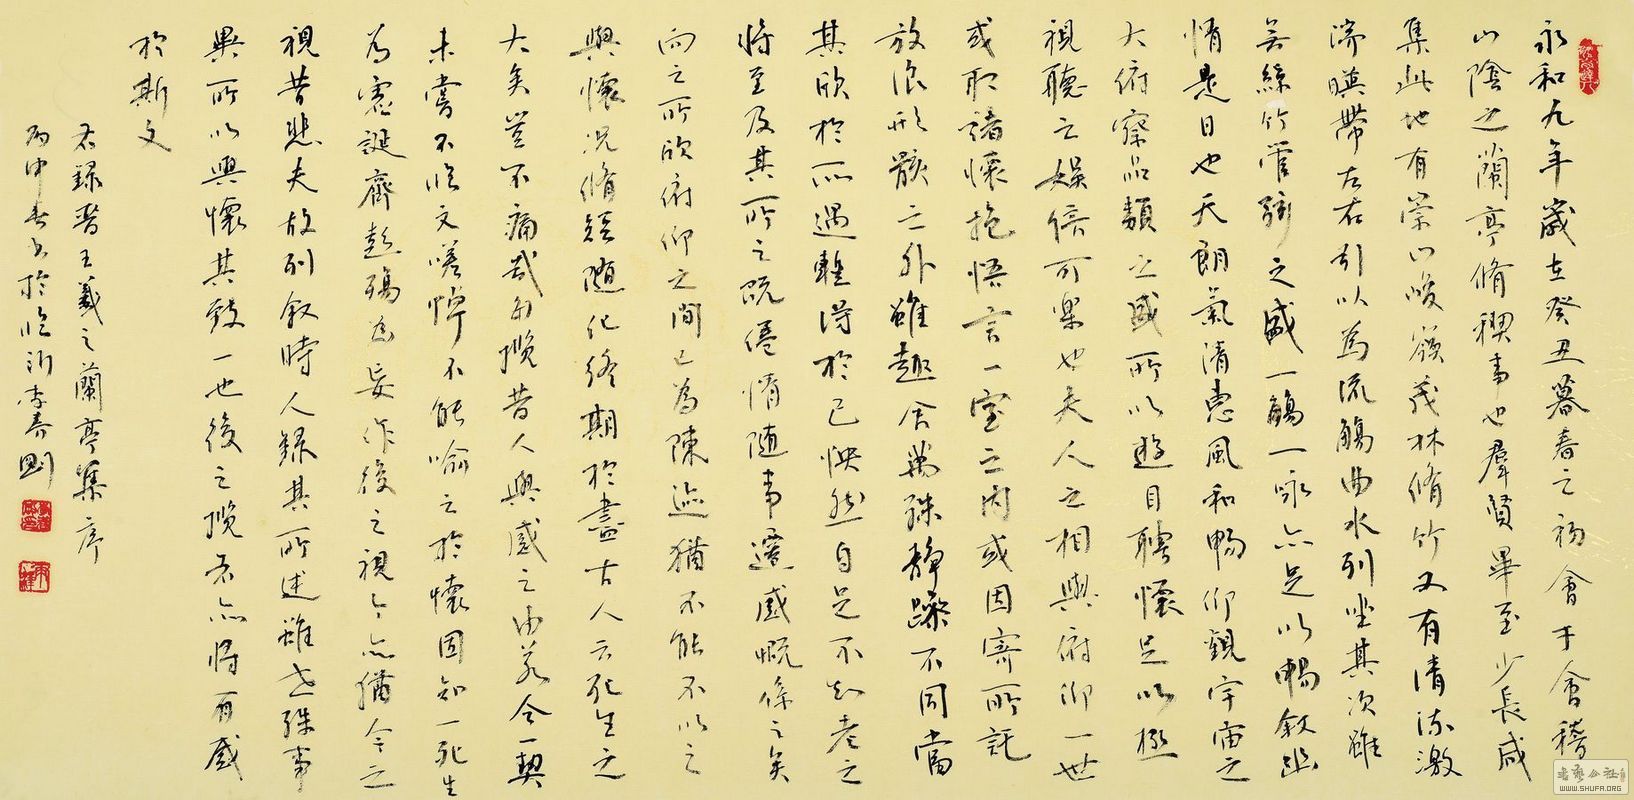 永和九年歲在癸丑暮春之初會于會稽
山陰之蘭亭脩稧事也羣賢畢至少長咸
集此地有崇山峻嶺茂林脩竹又有清流激
湍暎帶左右引以為流觴曲水列坐其次雖
無絲竹管弦之盛一觴一詠亦足以暢敘幽
情是日也天朗氣清惠風和暢仰觀宇宙之
大俯察品類之盛所以遊目騁懷足以極
視聽之娛信可樂也夫人之相與俯仰一世
或取諸懷抱悟言一室之內或因寄所託
放浪形骸之外雖趣舍萬殊靜躁不同當
其欣於所遇暫得於己怏然自足不知老之
將至及其所之既倦情隨事遷感慨係之矣
向之所欣俯仰之間已為陳迹猶不能不以之
興懷況脩短隨化終期於盡古人云死生之
大矣豈不痛哉每攬昔人興感之由若合一契
未嘗不臨文嗟悼不能喻之於懷固知一死生
為虛誕齊彭殤為妄作後之視今亦猶今之
視昔悲夫故列敘時人錄其所述雖世殊事
異所以興懷其致一也後之攬者亦將有感
於斯文
右錄晉王羲之蘭亭集序
丙申春書於臨沂李春剛
书艺公社
WWW.SHUFA.ORG